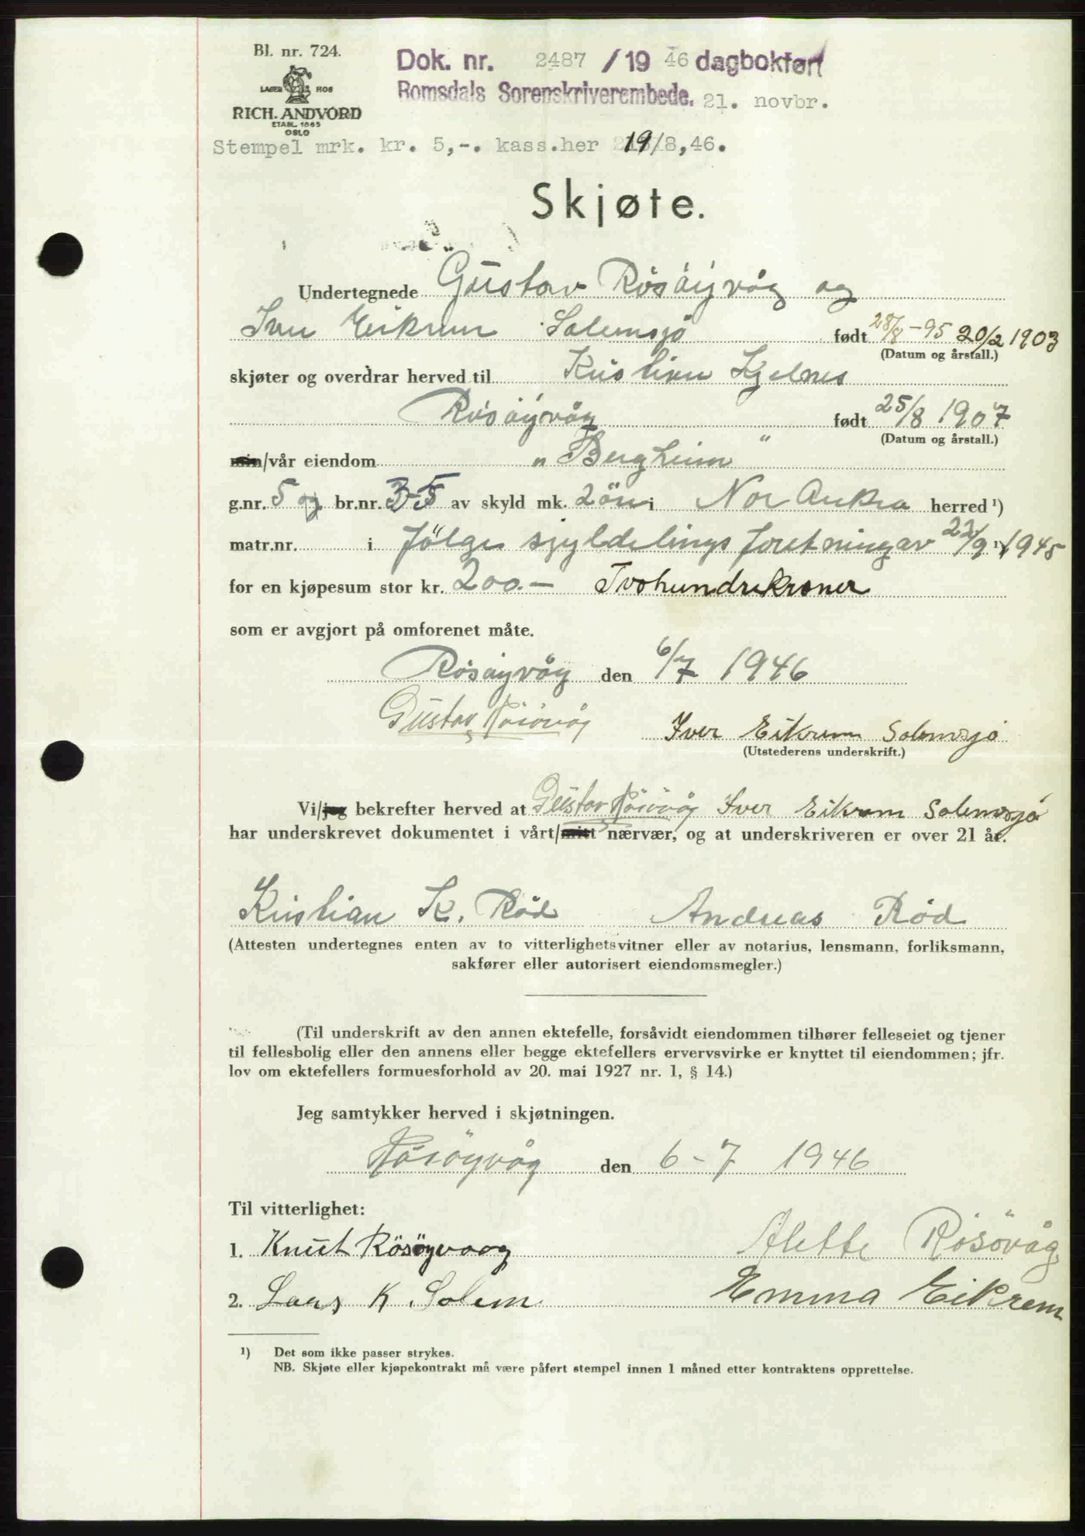 Bl. nr. 724.
LAGER HOS
RICH. ANDVORD
ETABL. 1865
OSLO
Dok. nr. 2487 / 19 46 dagbokført
Romsdals Sorenskriverembede. 21. novbr.
Stempel mrk. kr. 5,-. kass.her 19/8,46.
Skjøte.
Undertegnede Gustav Rösöyvåg og
Iver Eikrem Solemsjø født 28/8-95 20/2 1903
(Datum og årstall.)
skjøter og overdrar herved til Kristian Kjelnes
Rösöyvåg født 25/8 1907
(Datum og årstall.)
min/vår eiendom „Bergheim"
g.nr. 5 og br.nr. 35 av skyld mk. 2 i Nor Aukra herred ¹)
matr.nr. i følge skyldelings foretning av 22/9 1945
for en kjøpesum stor kr. 200.- Tvohundrekroner
som er avgjort på omforenet måte.
Rösöyvåg den 6/7 1946
Gustav Rösövåg Iver Eikrem Solemsjø
(Utstederens underskrift.)
Vi/jeg bekrefter herved at Gustav Rösövåg Iver Eikrem Solemsjø
har underskrevet dokumentet i vårt/mitt nærvær, og at underskriveren er over 21 år.
Kristian K. Rød Andreas Rød
(Attesten undertegnes enten av to vitterlighetsvitner eller av notarius, lensmann, forliksmann,
sakfører eller autorisert eiendomsmegler.)
(Til underskrift av den annen ektefelle, forsåvidt eiendommen tilhører felleseiet og tjener
til fellesbolig eller den annens eller begge ektefellers ervervsvirke er knyttet til eiendommen; jfr.
lov om ektefellers formuesforhold av 20. mai 1927 nr. 1, § 14.)
Jeg samtykker herved i skjøtningen.
Rösöyvåg den 6-7 1946
Til vitterlighet:
1. Knut Rösöyvaag Alette Rösövåg
2. Lars K. Solem Emma Eikrem
¹) Det som ikke passer strykes.
NB. Skjøte eller kjøpekontrakt må være påført stempel innen 1 måned etter kontraktens opprettelse.